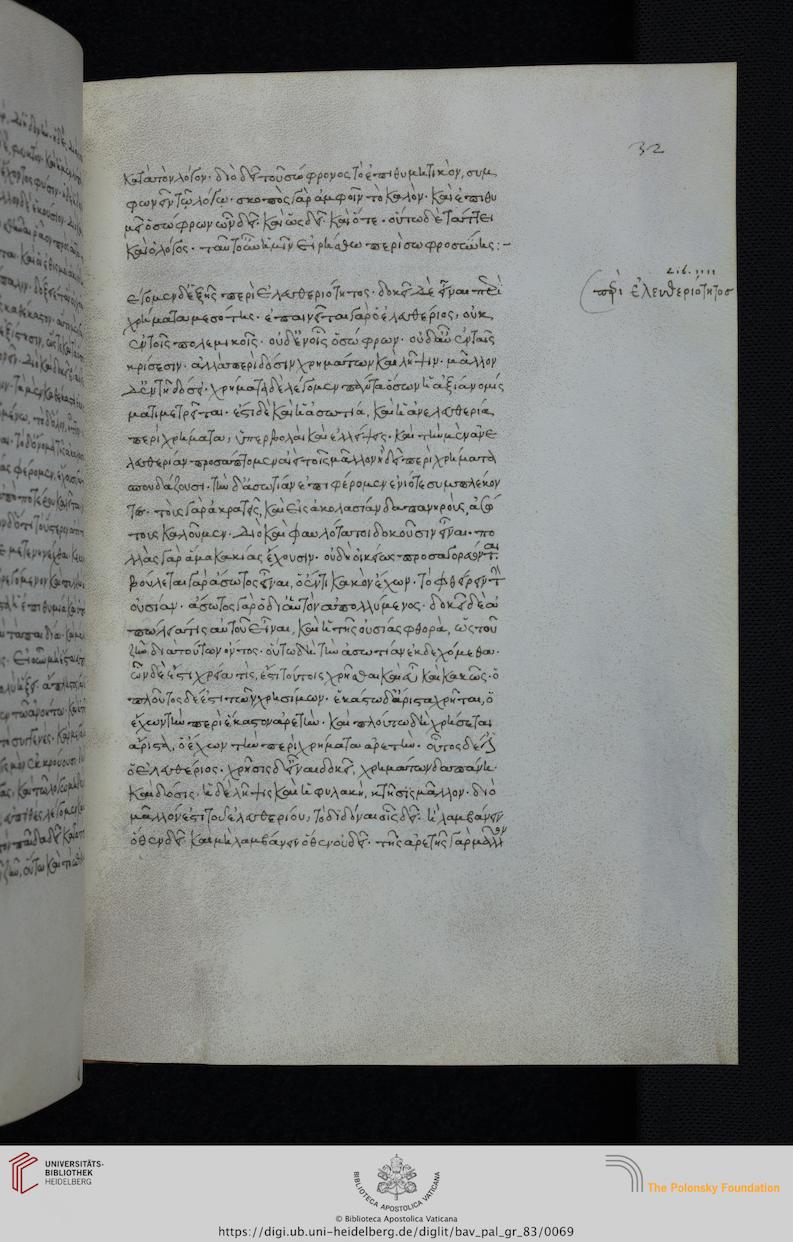 32
κατὰ τὸν λόγον· διὸ δεῖ τοῦ σώφρονος τὸ ἐπιθυμητικὸν, συμ
φωνεῖν τῶ λόγω· σκοπὸς γὰρ ἀμφοῖν τὸ καλὸν· καὶ ἐπιθυ
μεῖ ὁ σώφρων ὧν δεῖ· καὶ ὡς δεῖ· καὶ ὅτε· οὕτω δὲ τάττει
καὶ ὁ λόγος· ταῦτα οὖν ἡμῖν εἰρήσθω περὶ σωφροσύνης :-
λέγωμεν δ' ἑξῆς περὶ ἐλευθεριότητος· δοκεῖ δὲ εἶναι περὶ
χρήματα μεσότης· ἐπαινεῖται γὰρ ὁ ἐλευθέριος, οὐκ
ἐν τοῖς πολεμικοῖς· οὐδ' ἐν οἷς ὁ σώφρων· οὐδ' αὖ ἐν ταῖς
κρίσεσιν· ἀλλὰ περὶ δόσιν χρημάτων καὶ λῆψιν· μᾶλλον
δ' ἐν τῆ δόσει· χρήματα δὲ λέγομεν πάντα ὅσων ἡ ἀξία νομίς
ματι μετρεῖται· ἔστι δὲ καὶ ἡ ἀσωτία, καὶ ἡ ἀνελευθερία
περὶ χρήματα, ὑπερβολαὶ καὶ ἐλλείψεις· καὶ τὴν μὲν ἀνε
λευθερίαν προσάπτομεν ἀεὶ τοῖς μᾶλλον ἢ δεῖ περὶ χρήματα
σπουδάζουσι· τὴν δ' ἀσωτίαν ἐπιφέρομεν ἐνίοτε συμπλέκον
τες· τοὺς γὰρ ἀκρατεῖς, καὶ εἰς ἀκολασίαν δαπανηροὺς, ἀσώ
τους καλοῦμεν· διὸ καὶ φαυλότατοι δοκοῦσιν εἶναι· πο
λλὰς γὰρ ἅμα κακίας ἔχουσιν· οὐ δὴ οἰκείως προσαγορεύονται·
βούλεται γὰρ ἄσωτος εἶναι, ὁ ἓν τι κακὸν ἔχων· τὸ φθείρειν τὴν
οὐσίαν· ἄσωτος γὰρ ὁ δι' αὑτὸν ἀπολλύμενος· δοκεῖ δὲ ἀ
πώλειά τις αὐτοῦ εἶναι, καὶ ἡ τῆς οὐσίας φθορὰ, ὡς τοῦ
ζῆν διὰ τούτων ὄντος· οὕτω δὴ τὴν ἀσωτίαν ἐκδεχόμεθα·
ὧν δέ ἐστι χρεία τις, ἔστι τούτοις χρῆσθαι καὶ εὖ καὶ κακῶς· ὁ
πλοῦτος δέ ἐστι τῶν χρησίμων· ἑκάστω δ' ἄριστα χρῆται, ὁ
ἔχων τὴν περὶ ἕκαστον ἀρετὴν· καὶ πλούτω δὴ χρήσεται
ἄριστα, ὁ ἔχων τὴν περὶ χρήματα ἀρετὴν· οὗτος δέ ἐστιν
ὁ ἐλευθέριος· χρῆσις δ' εἶναι δοκεῖ, χρημάτων δαπάνη·
καὶ δόσις· ἡ δὲ λῆψις καὶ ἡ φυλακὴ, κτῆσις μᾶλλον· διὸ
μᾶλλόν ἐστι τοῦ ἐλευθερίου, τὸ διδόναι οἷς δεῖ· ἢ λαμβάνειν
ὅθεν δεῖ· καὶ μὴ λαμβάνειν ὅθεν οὐ δεῖ· τῆς ἀρετῆς γὰρ μᾶλλον
Lib. IIII
περὶ ἐλευθεριότητοσ
UNIVERSITÄTS-
BIBLIOTHEK
HEIDELBERG
BIBLIOTECA APOSTOLICA VATICANA
The Polonsky Foundation
© Biblioteca Apostolica Vaticana
https://digi.ub.uni-heidelberg.de/diglit/bav_pal_gr_83/0069